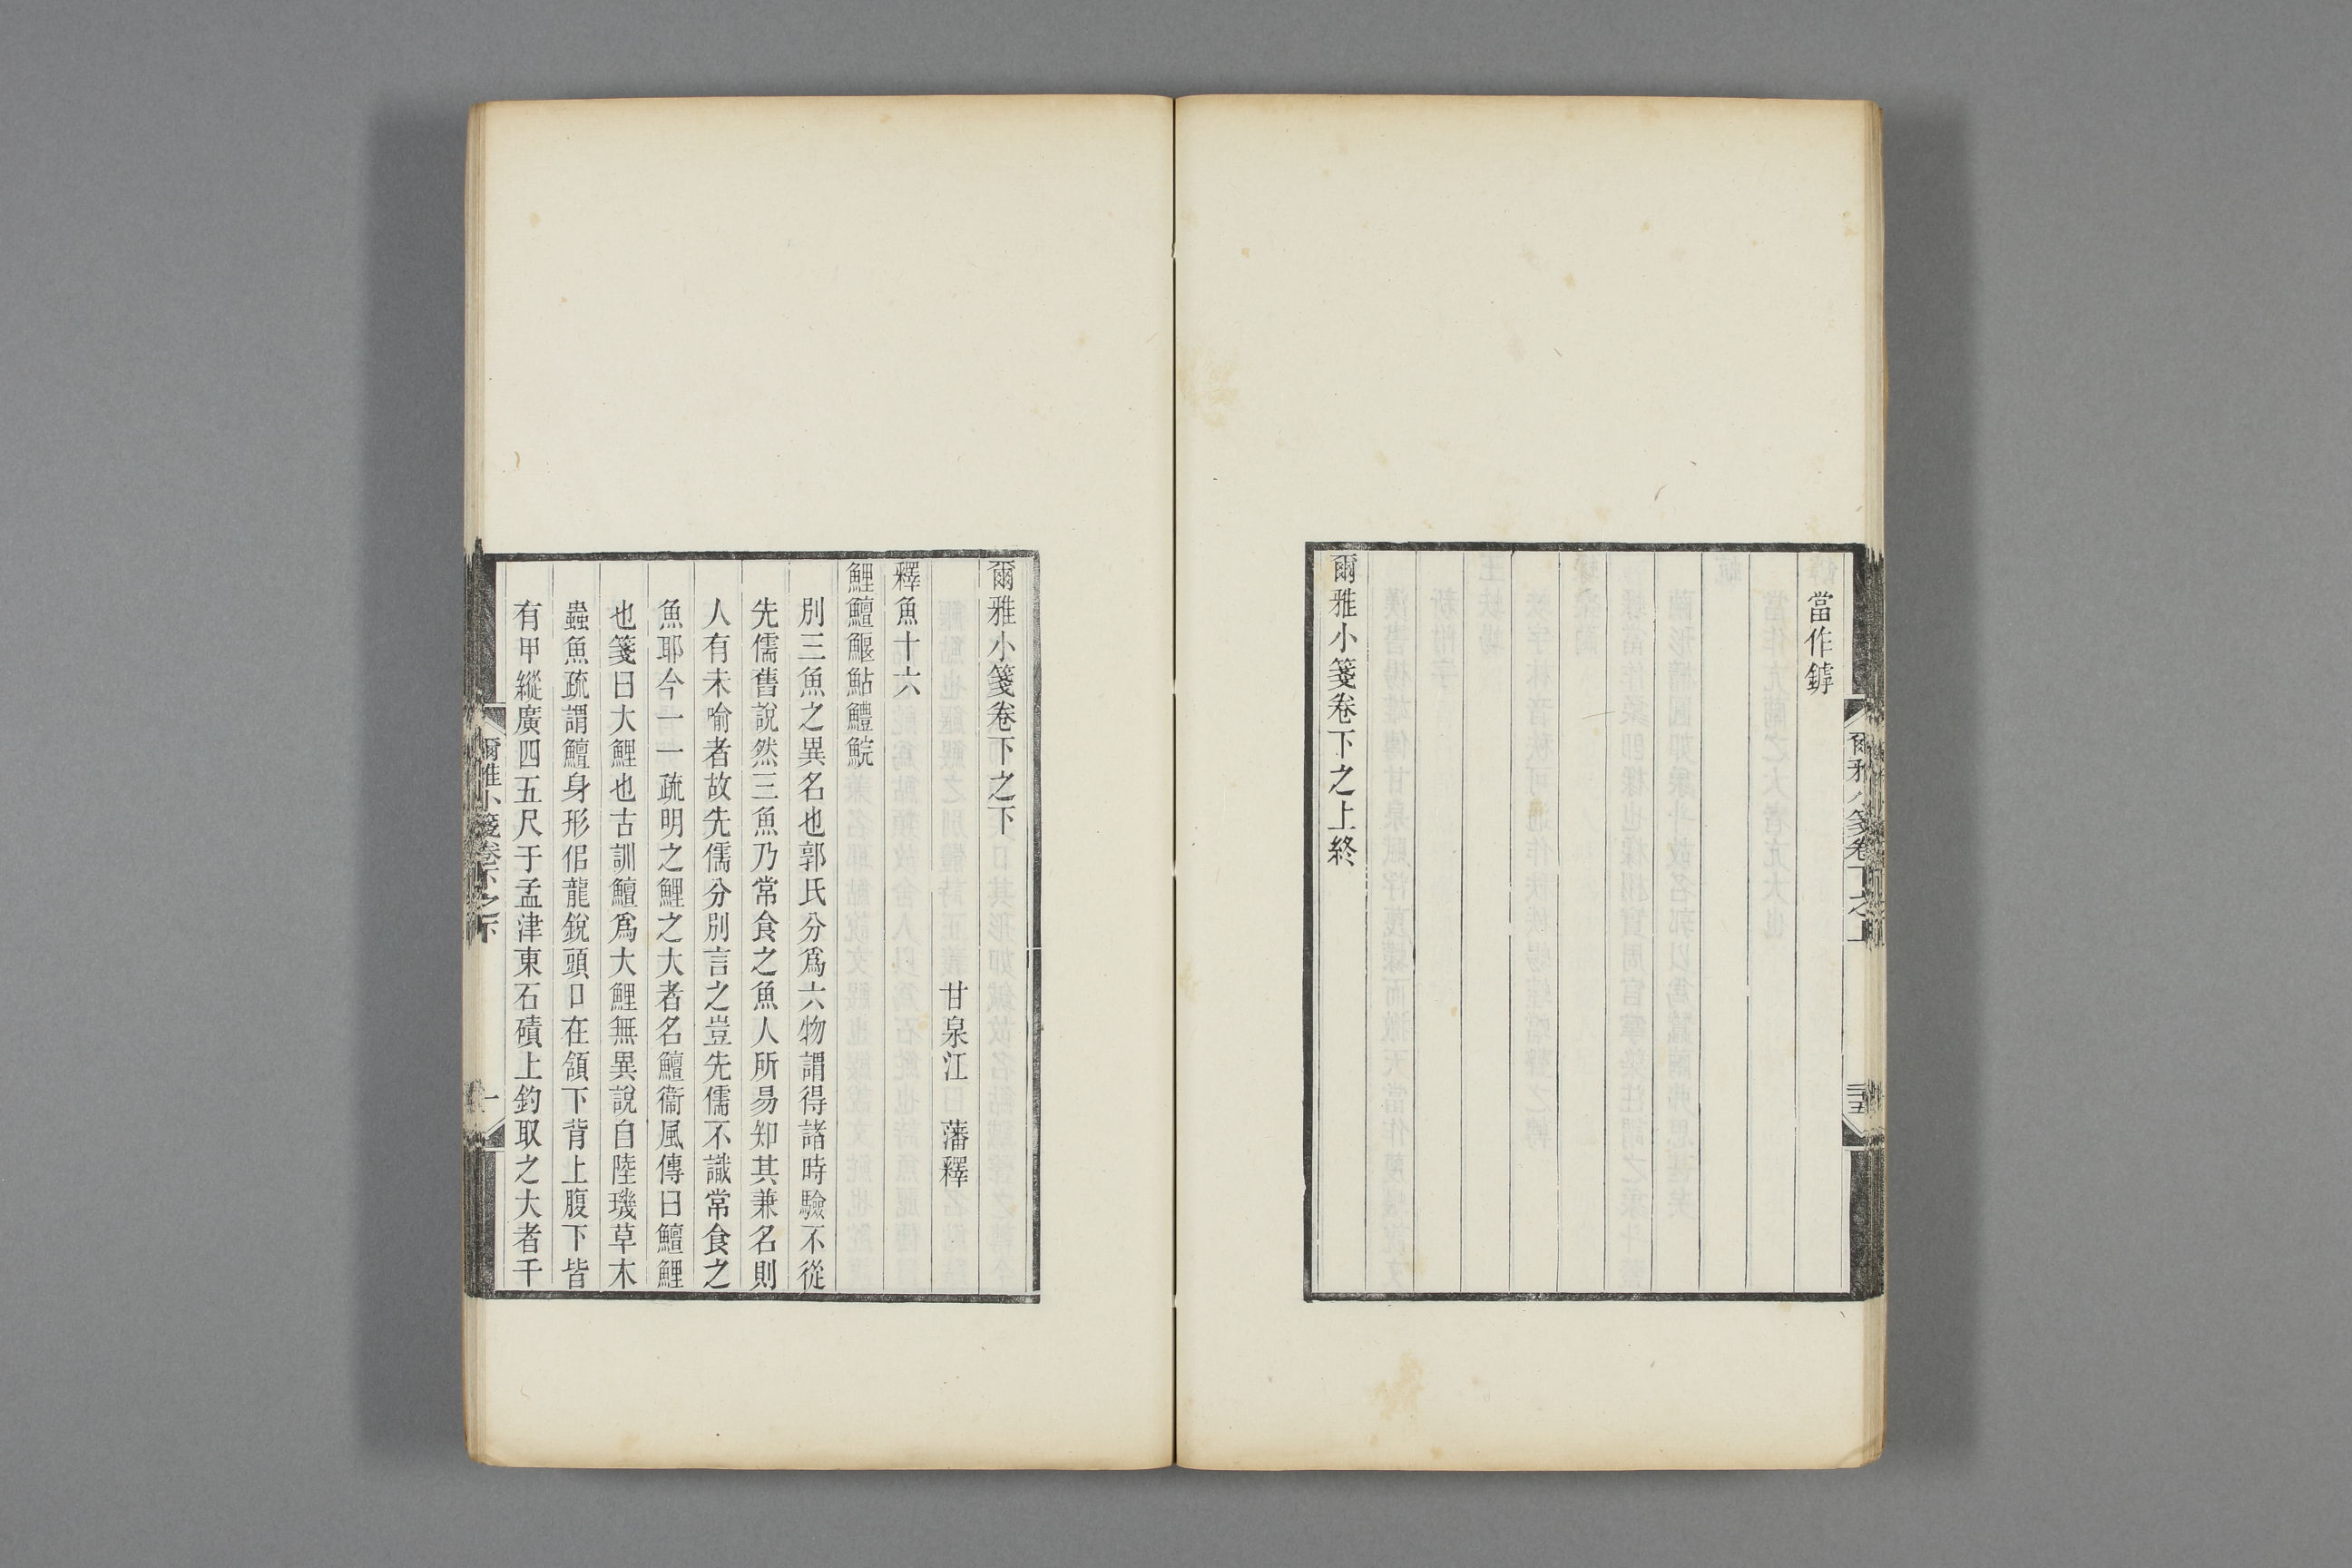 當作鎼
爾雅小箋卷下之上終
爾雅小箋卷下之上
三十五
爾雅小箋卷下之下
甘泉江 藩釋
釋魚十六
鯉鱣鰋鮎鱧鯇
別三魚之異名也郭氏分爲六物謂得諸時驗不從
先儒舊說然三魚乃常食之魚人所易知其兼名則
人有未喻者故先儒分別言之豈先儒不識常食之
魚耶今一一疏明之鯉之大者名鱣衞風傳曰鱣鯉
也箋曰大鯉也古訓鱣爲大鯉無異說自陸璣草木
蟲魚疏謂鱣身形佀龍銳頭口在頷下背上腹下皆
有甲縱廣四五尺于孟津東石磧上釣取之大者千
爾雅小箋卷下之下
一